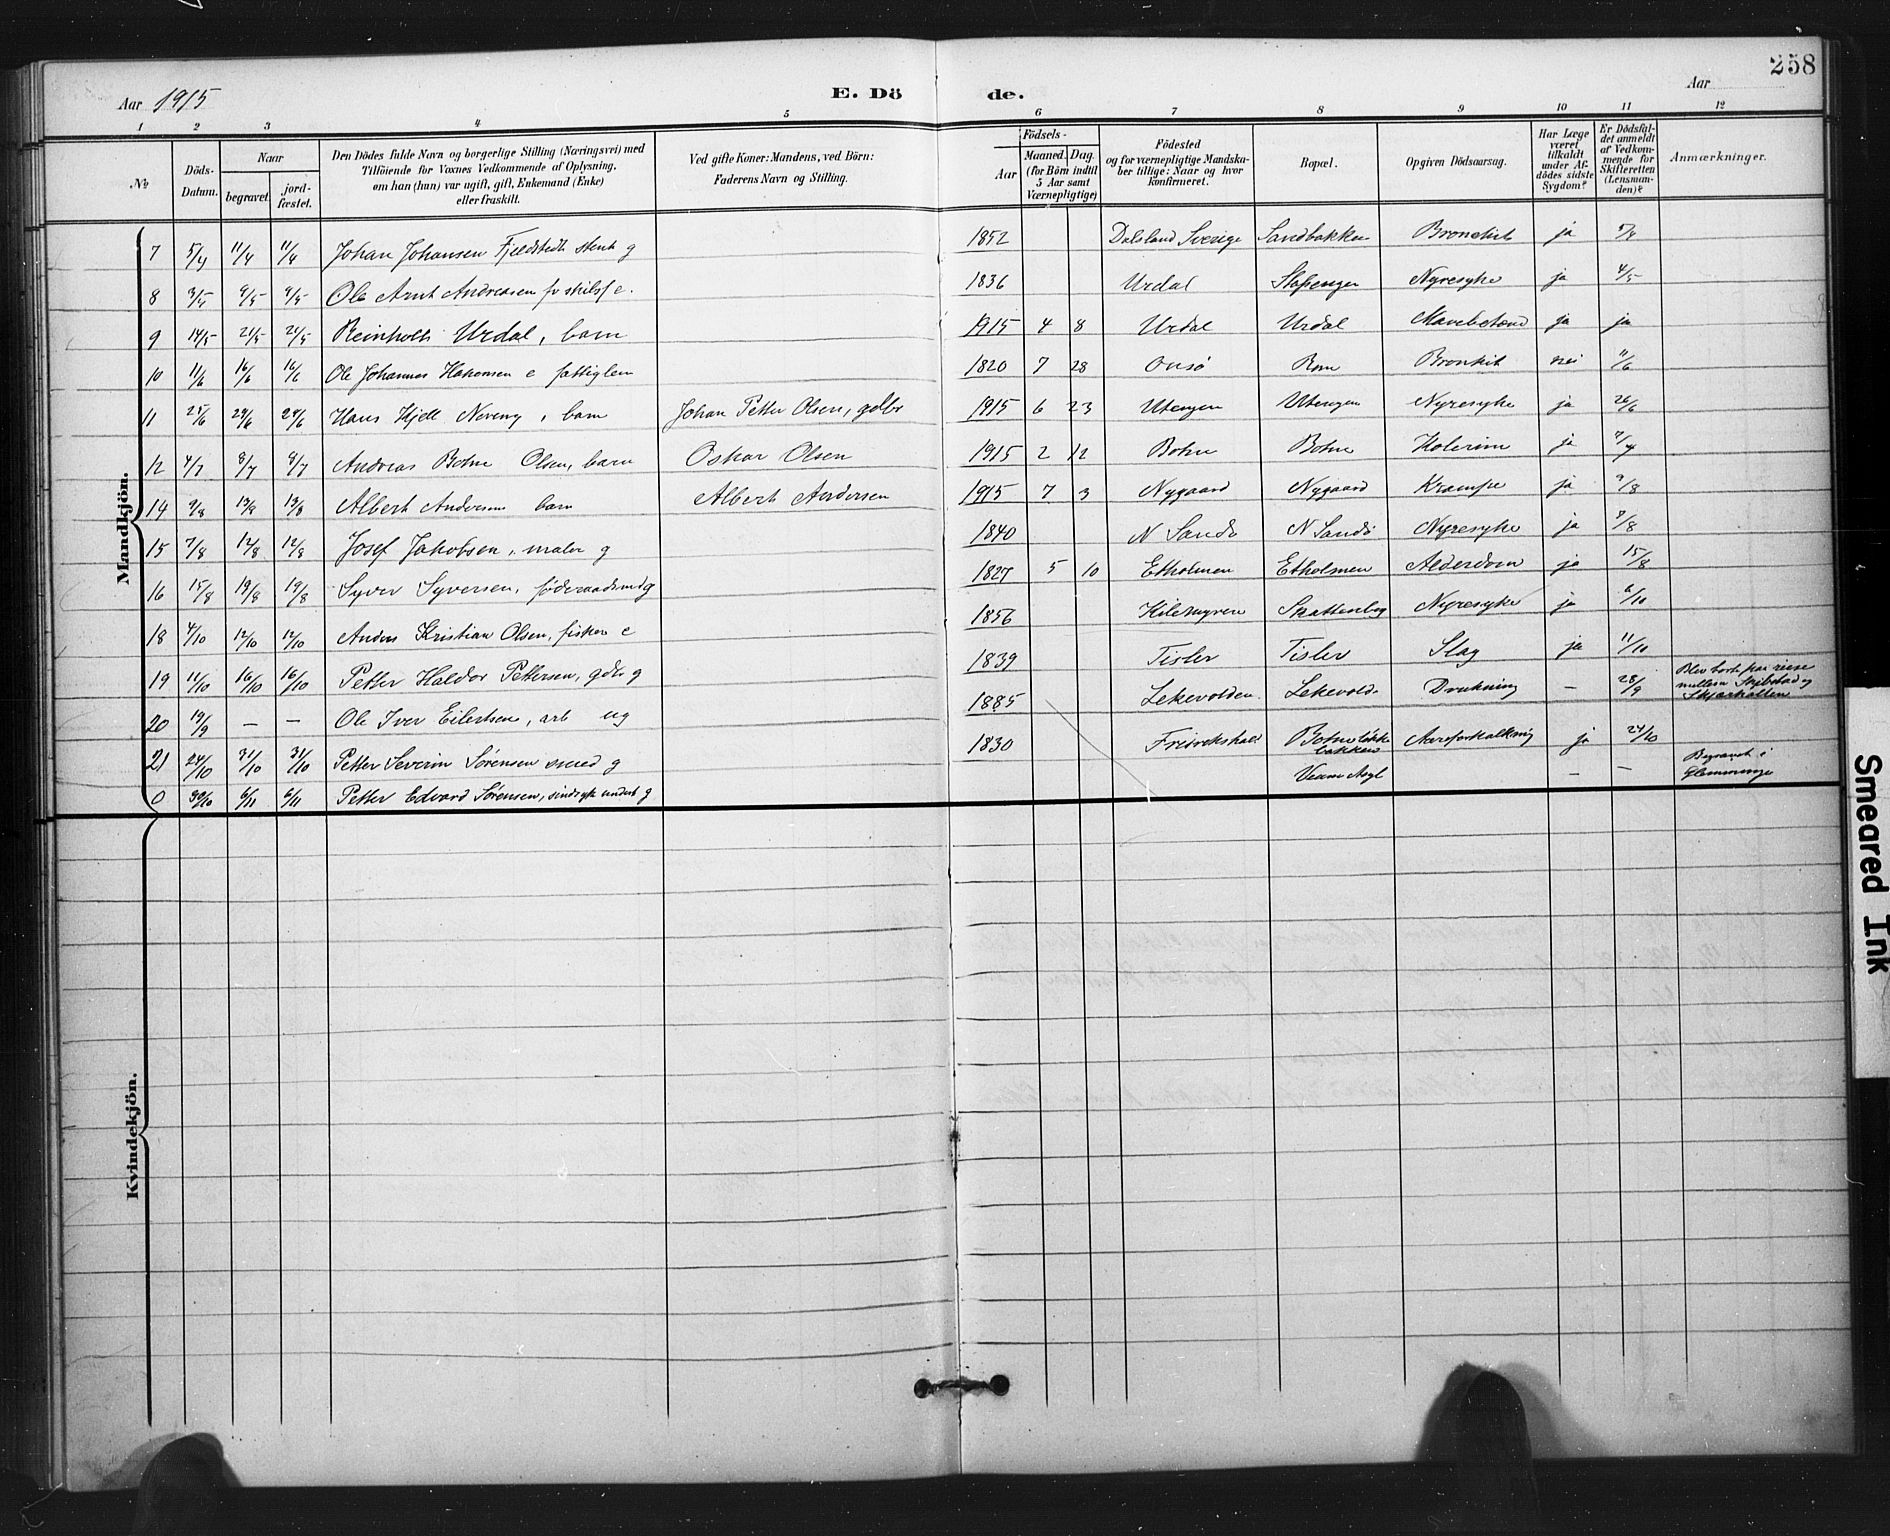 258
Aar 1915 E. Dö de. Aar
1 2 3 4 5 6 7 8 9 10 11 12
№
Döds-
Datum.
Naar
begravet.
jord-
fæstet.
Den Dödes fulde Navn og borgerlige Stilling (Næringsvei) med
Tilföiende for Voxnes Vedkommende af Oplysning,
om han (hun) var ugift, gift, Enkemand (Enke)
eller fraskilt.
Ved gifte Koner: Mandens, ved Börn:
Faderens Navn og Stilling.
Födsels-
Aar
Maaned. Dag.
(for Börn indtil
5 Aar samt
Værnepligtige)
Födested
og for værnepligtige Mandska-
ber tillige: Naar og hvor
konfirmeret.
Bopæl.
Opgiven Dödsaarsag.
Har Læge
været
tilkaldt
under Af-
dödes sidste
Sygdom?
Er Dödsfal-
det anmeldt
af Vedkom-
mende for
Skifteretten
(Lensman-
den)?
Anmærkninger.
Mandkjön.
7 5/4 11/4 11/4 Johan Johansen Fjeldstedt stenh g 1852 Dalsland Sverige Sandbakken Bronchit ja 5/4
8 3/5 9/5 9/5 Ole Arnt Andreasen e. 1836 Urdal Nyresyke ja 4/5
9 14/5 21/5 21/5 Reinholdt Urdal, barn 1915 4 8 Urdal Urdal ja ja
10 11/6 16/6 16/6 Ole Johannes Hakonsen e fattiglem 1820 7 28 Onsö Rom Bronkit nei 11/6
11 25/6 29/6 29/6 Hans Kjell, barn Johan Petter Olsen, gdbr 1915 6 23 Utengen Utengen Nyresyke ja 26/6
12 4/7 8/7 8/7 Andreas Botne Olsen, barn Oskar Olsen 1915 2 12 Botne Botne Kolerine ja 7/7
14 9/8 13/8 13/8 Albert Andersen barn Albert Andersen 1915 7 3 Nygaard Nygaard Krampe ja 9/8
15 7/8 12/8 12/8 Josef Jakobsen, maler g 1840 N Sandö N Sandö Nyresyke ja 7/8
16 15/8 19/8 19/8 Syver Syversen, föderaadsmd g 1827 5 10 Etholmen Etholmen Alderdom ja 15/8
18 4/10 12/10 12/10 Anders Kristian Olsen, fisker e 1856 Kilemyren Nyresyke ja 6/10
19 11/10 16/10 16/10 Petter Haldor Pettersen, gdbr g 1839 Tisler Tisler Slag ja 11/10
20 19/9 — — Ole Iver Eilertsen, arb ug 1885 Lekevolden Lekevold Drukning — 28/9 Blev borte paa reise
mellem og
Skjærhallen
21 24/10 31/10 31/10 Petter Severin Sörensen smed g 1830 Fredrikshald Botne lökke
bakken Aareforkalkning ja 24/10
0 30/10 6/11 6/11 Petter Edvard Sörensen, sindssyk underst g Veum Asyl — — Begravet i
Glemminge
Kvindekjön.
Smeared Ink